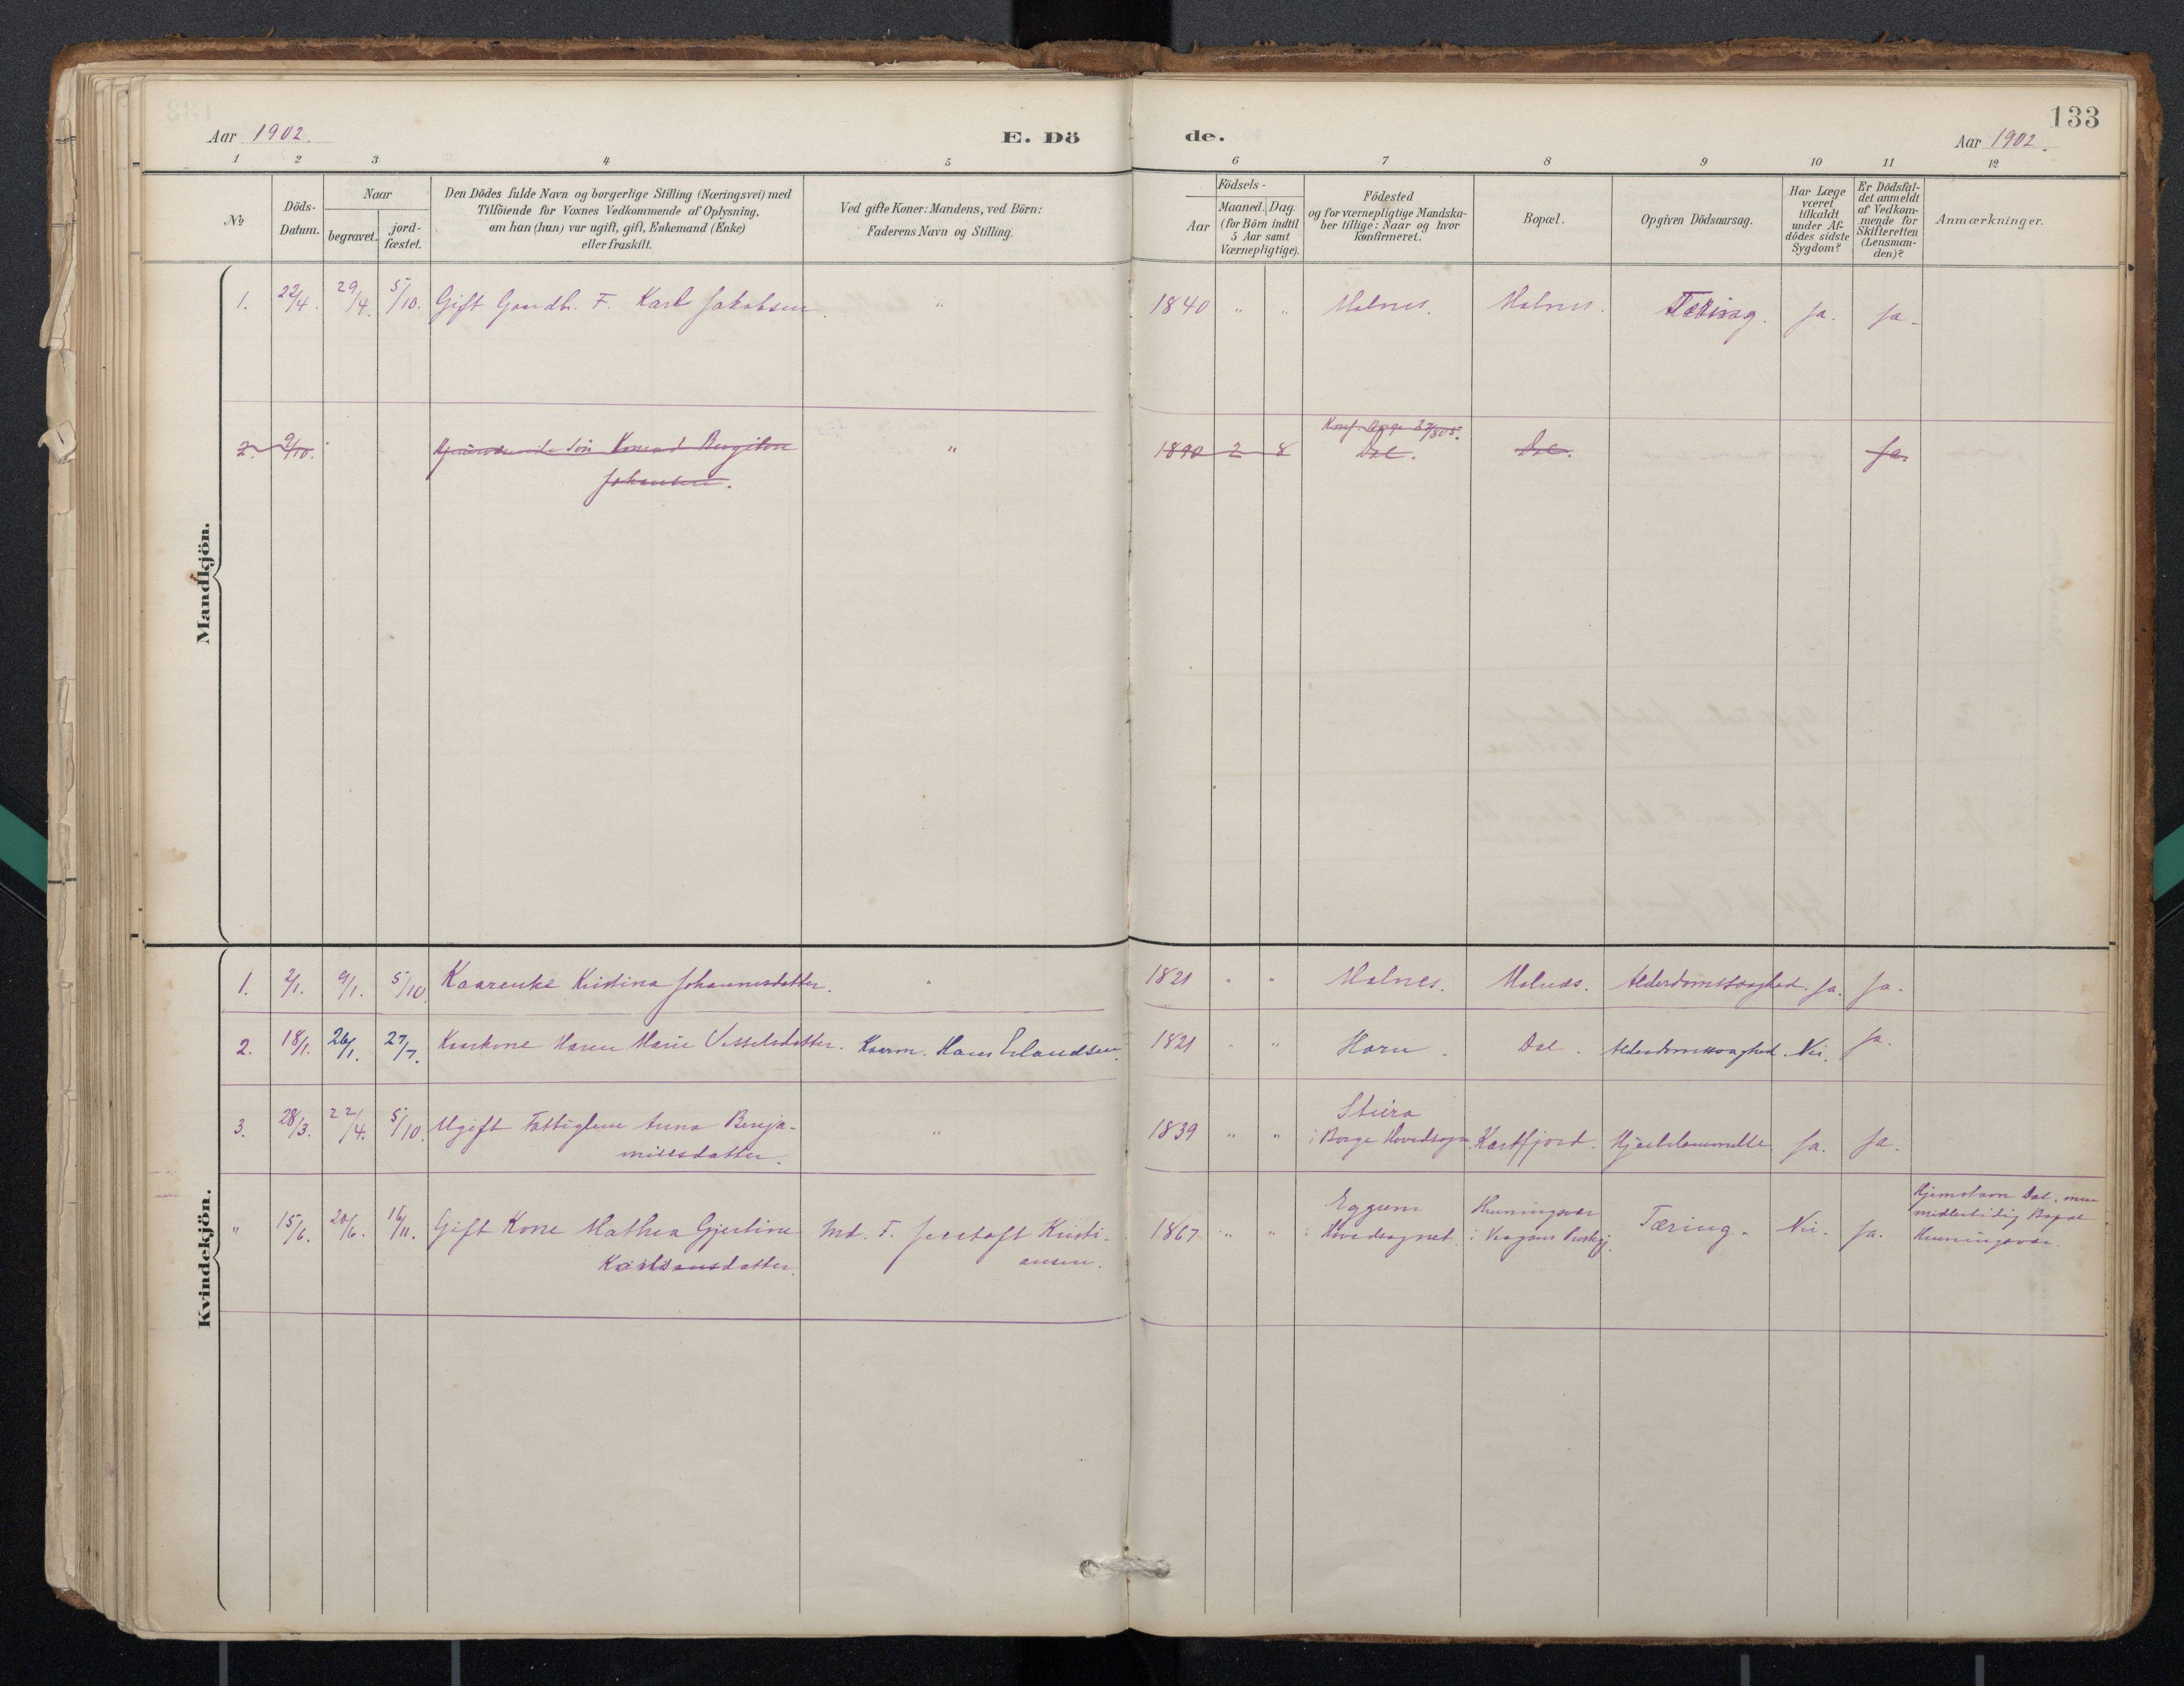 133
Aar 1902.
E. Dö
de.
Aar 1902.
1 2 3 4 5 6 7 8 9 10 11 12
№
Döds-
Datum.
Naar
begravet.
jord-
fæstet.
Den Dödes fulde Navn og borgerlige Stilling (Næringsvei) med
Tilföiende for Voxnes Vedkommende af Oplysning,
om han (hun) var ugift, gift, Enkemand (Enke)
eller fraskilt.
Ved gifte Koner: Mandens, ved Börn:
Faderens Navn og Stilling.
Födsels-
Aar
Maaned. Dag.
(for Börn indtil
5 Aar samt
Værnepligtige).
Födested
og for værnepligtige Mandska-
ber tillige: Naar og hvor
konfirmeret.
Bopæl.
Opgiven Dödsaarsag.
Har Læge
været
tilkaldt
under Af-
dödes sidste
Sygdom?
Er Dödsfal-
det anmeldt
af Vedkom-
mende for
Skifteretten
(Lensman-
den)?
Anmærkninger.
Mandkjön.
1. 22/4. 29/4. 5/10. Gift Gaardbr. F. Karl Jakobsen. " 1840 " " Malnes. Malnes. Tæring. Ja. Ja.
2. 9/10. Søn Konrad Bergiton " 1890 2 8 Konf. Borge
Johansen. Dal. Dal. Ja.
Kvindekjön.
1. 2/1. 9/1. 5/10. Kaarenke Kristina Johannesdatter. " 1821 " " Malnes. Malnes. Alderdomssvaghed. Ja. Ja.
2. 18/1. 26/1. 27/7. Kaarkone Maren Marie Vesselsdatter. Kaarm. Hans Erlandsen. 1821 " " Horn. Dal. Alderdomssvaghed. Nei. Ja.
3. 28/3. 22/4. 5/10. Ugift Fattiglem Anna Benja- " 1839 " " Steira
minsdatter. i Borge Hovedsogn. Kartfjord. Hjerteslammelse Ja. Ja.
" 15/6. 20/6. 16/11. Gift Kone Mathea Gjertine Md. F. Kristi- 1867 " " Eggum
Karlsansdatter. ansen. i Hovedsognet. Henningsvær
i Vaagans Præstegj. Tæring. Nei. Ja. Hjemstavn Dal, men
midlertidig Bopæl
Henningsvær.